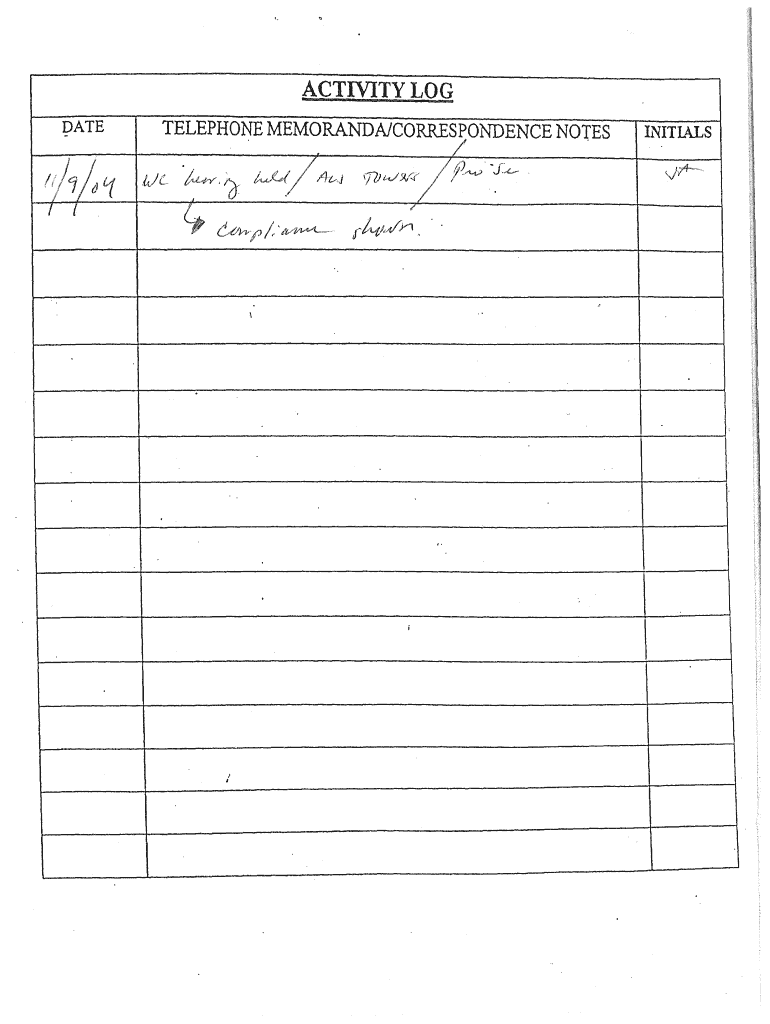 ACTIVITY LOG
DATE TELEPHONE MEMORANDA/CORRESPONDENCE NOTES INITIALS
11/9/04 WC hearing held / Towers / Pro Se
↳ Compliance shown.